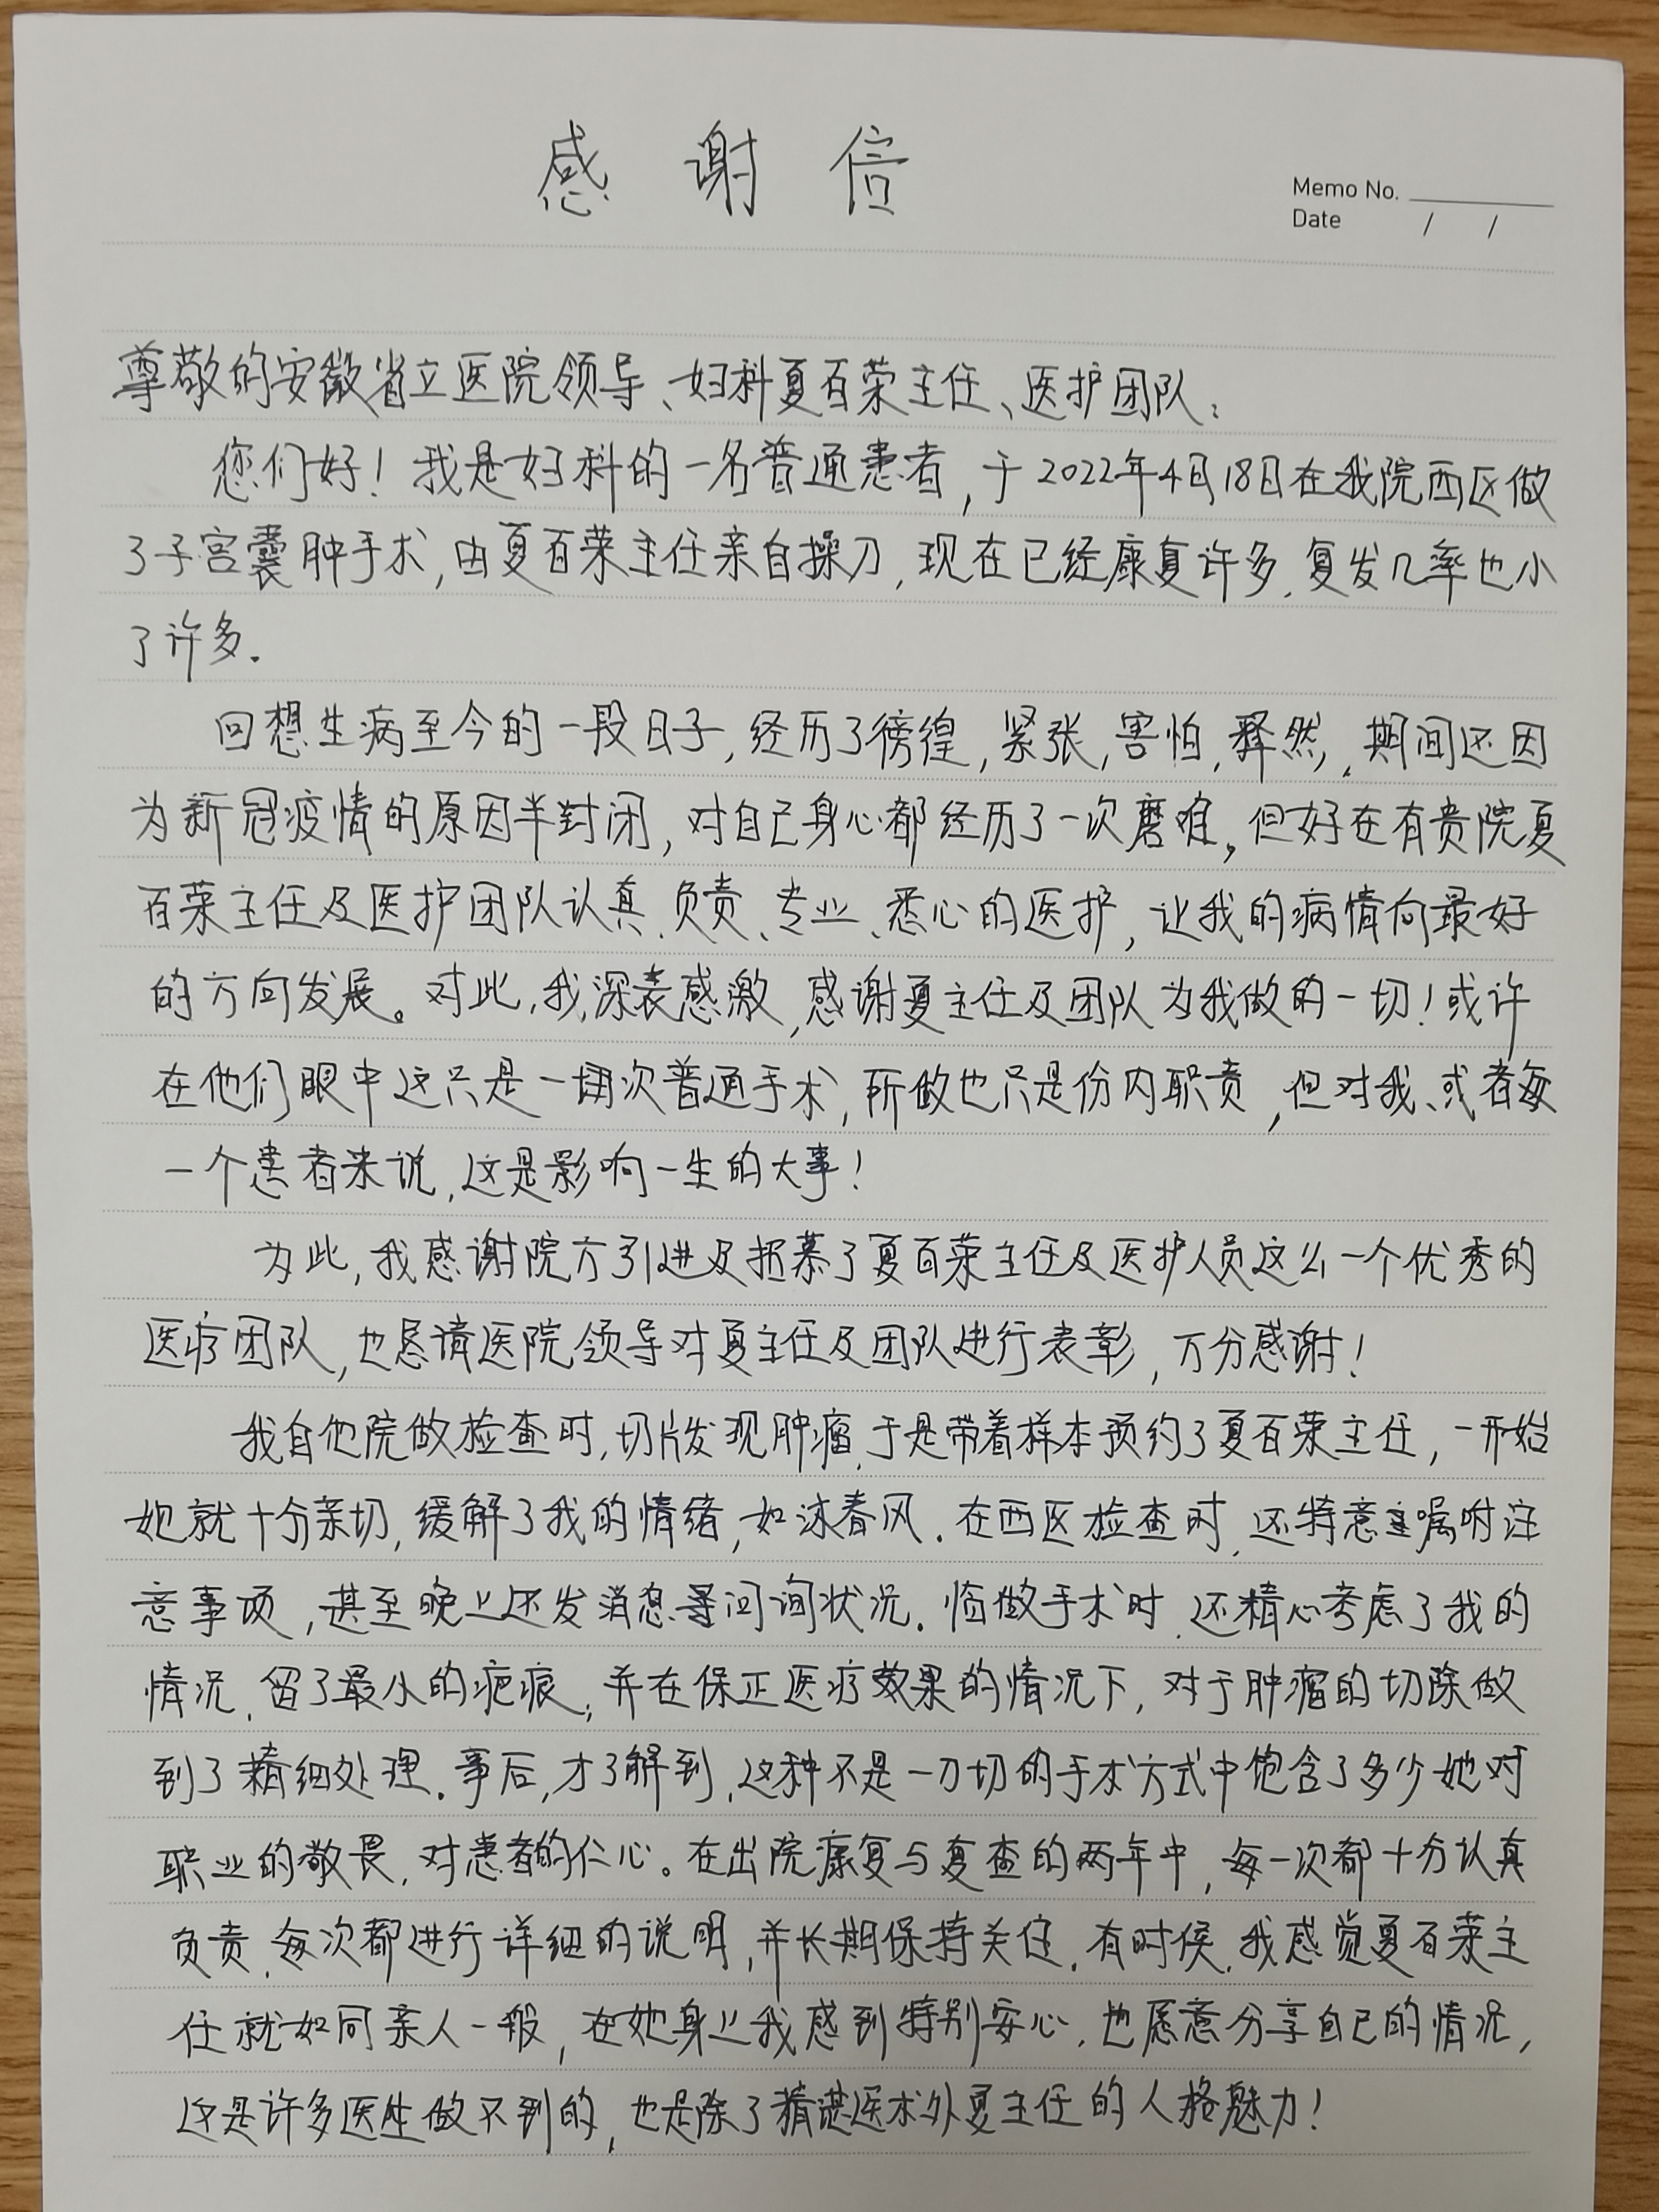 感谢信
Memo No.
Date / /
尊敬的安徽省立医院领导、妇科夏百荣主任、医护团队：
您们好！我是妇科的一名普通患者，于2022年4月18日在我院西区做
了子宫囊肿手术，由夏百荣主任亲自操刀，现在已经康复许多，复发几率也小
了许多。
回想生病至今的一段日子，经历了徬徨，紧张，害怕，释然，期间还因
为新冠疫情的原因半封闭，对自己身心都经历了一次磨难，但好在有贵院夏
百荣主任及医护团队认真、负责、专业、悉心的医护，让我的病情向最好
的方向发展。对此，我深表感激，感谢夏主任及团队为我做的一切！或许
在他们眼中这只是一次普通手术，所做也只是份内职责，但对我、或者每
一个患者来说，这是影响一生的大事！
为此，我感谢院方引进及招慕了夏百荣主任及医护人员这么一个优秀的
医疗团队，也恳请医院领导对夏主任及团队进行表彰，万分感谢！
我自他院做检查时，切片发现肿瘤，于是带着样本预约了夏百荣主任，一开始
她就十分亲切，缓解了我的情绪，如沐春风。在西区检查时，还特意嘱咐注
意事项，甚至晚上还发消息问询状况。临做手术时，还精心考虑了我的
情况，留了最小的疤痕，并在保正医疗效果的情况下，对于肿瘤的切除做
到了精细处理。事后，才了解到，这种不是一刀切的手术方式中饱含了多少她对
职业的敬畏，对患者的仁心。在出院康复与复查的两年中，每一次都十分认真
负责，每次都进行详细的说明，并长期保持关住，有时候，我感觉夏百荣主
任就如同亲人一般，在她身上我感到特别安心，也愿意分享自己的情况，
这是许多医生做不到的，也是除了精湛医术外夏主任的人格魅力！